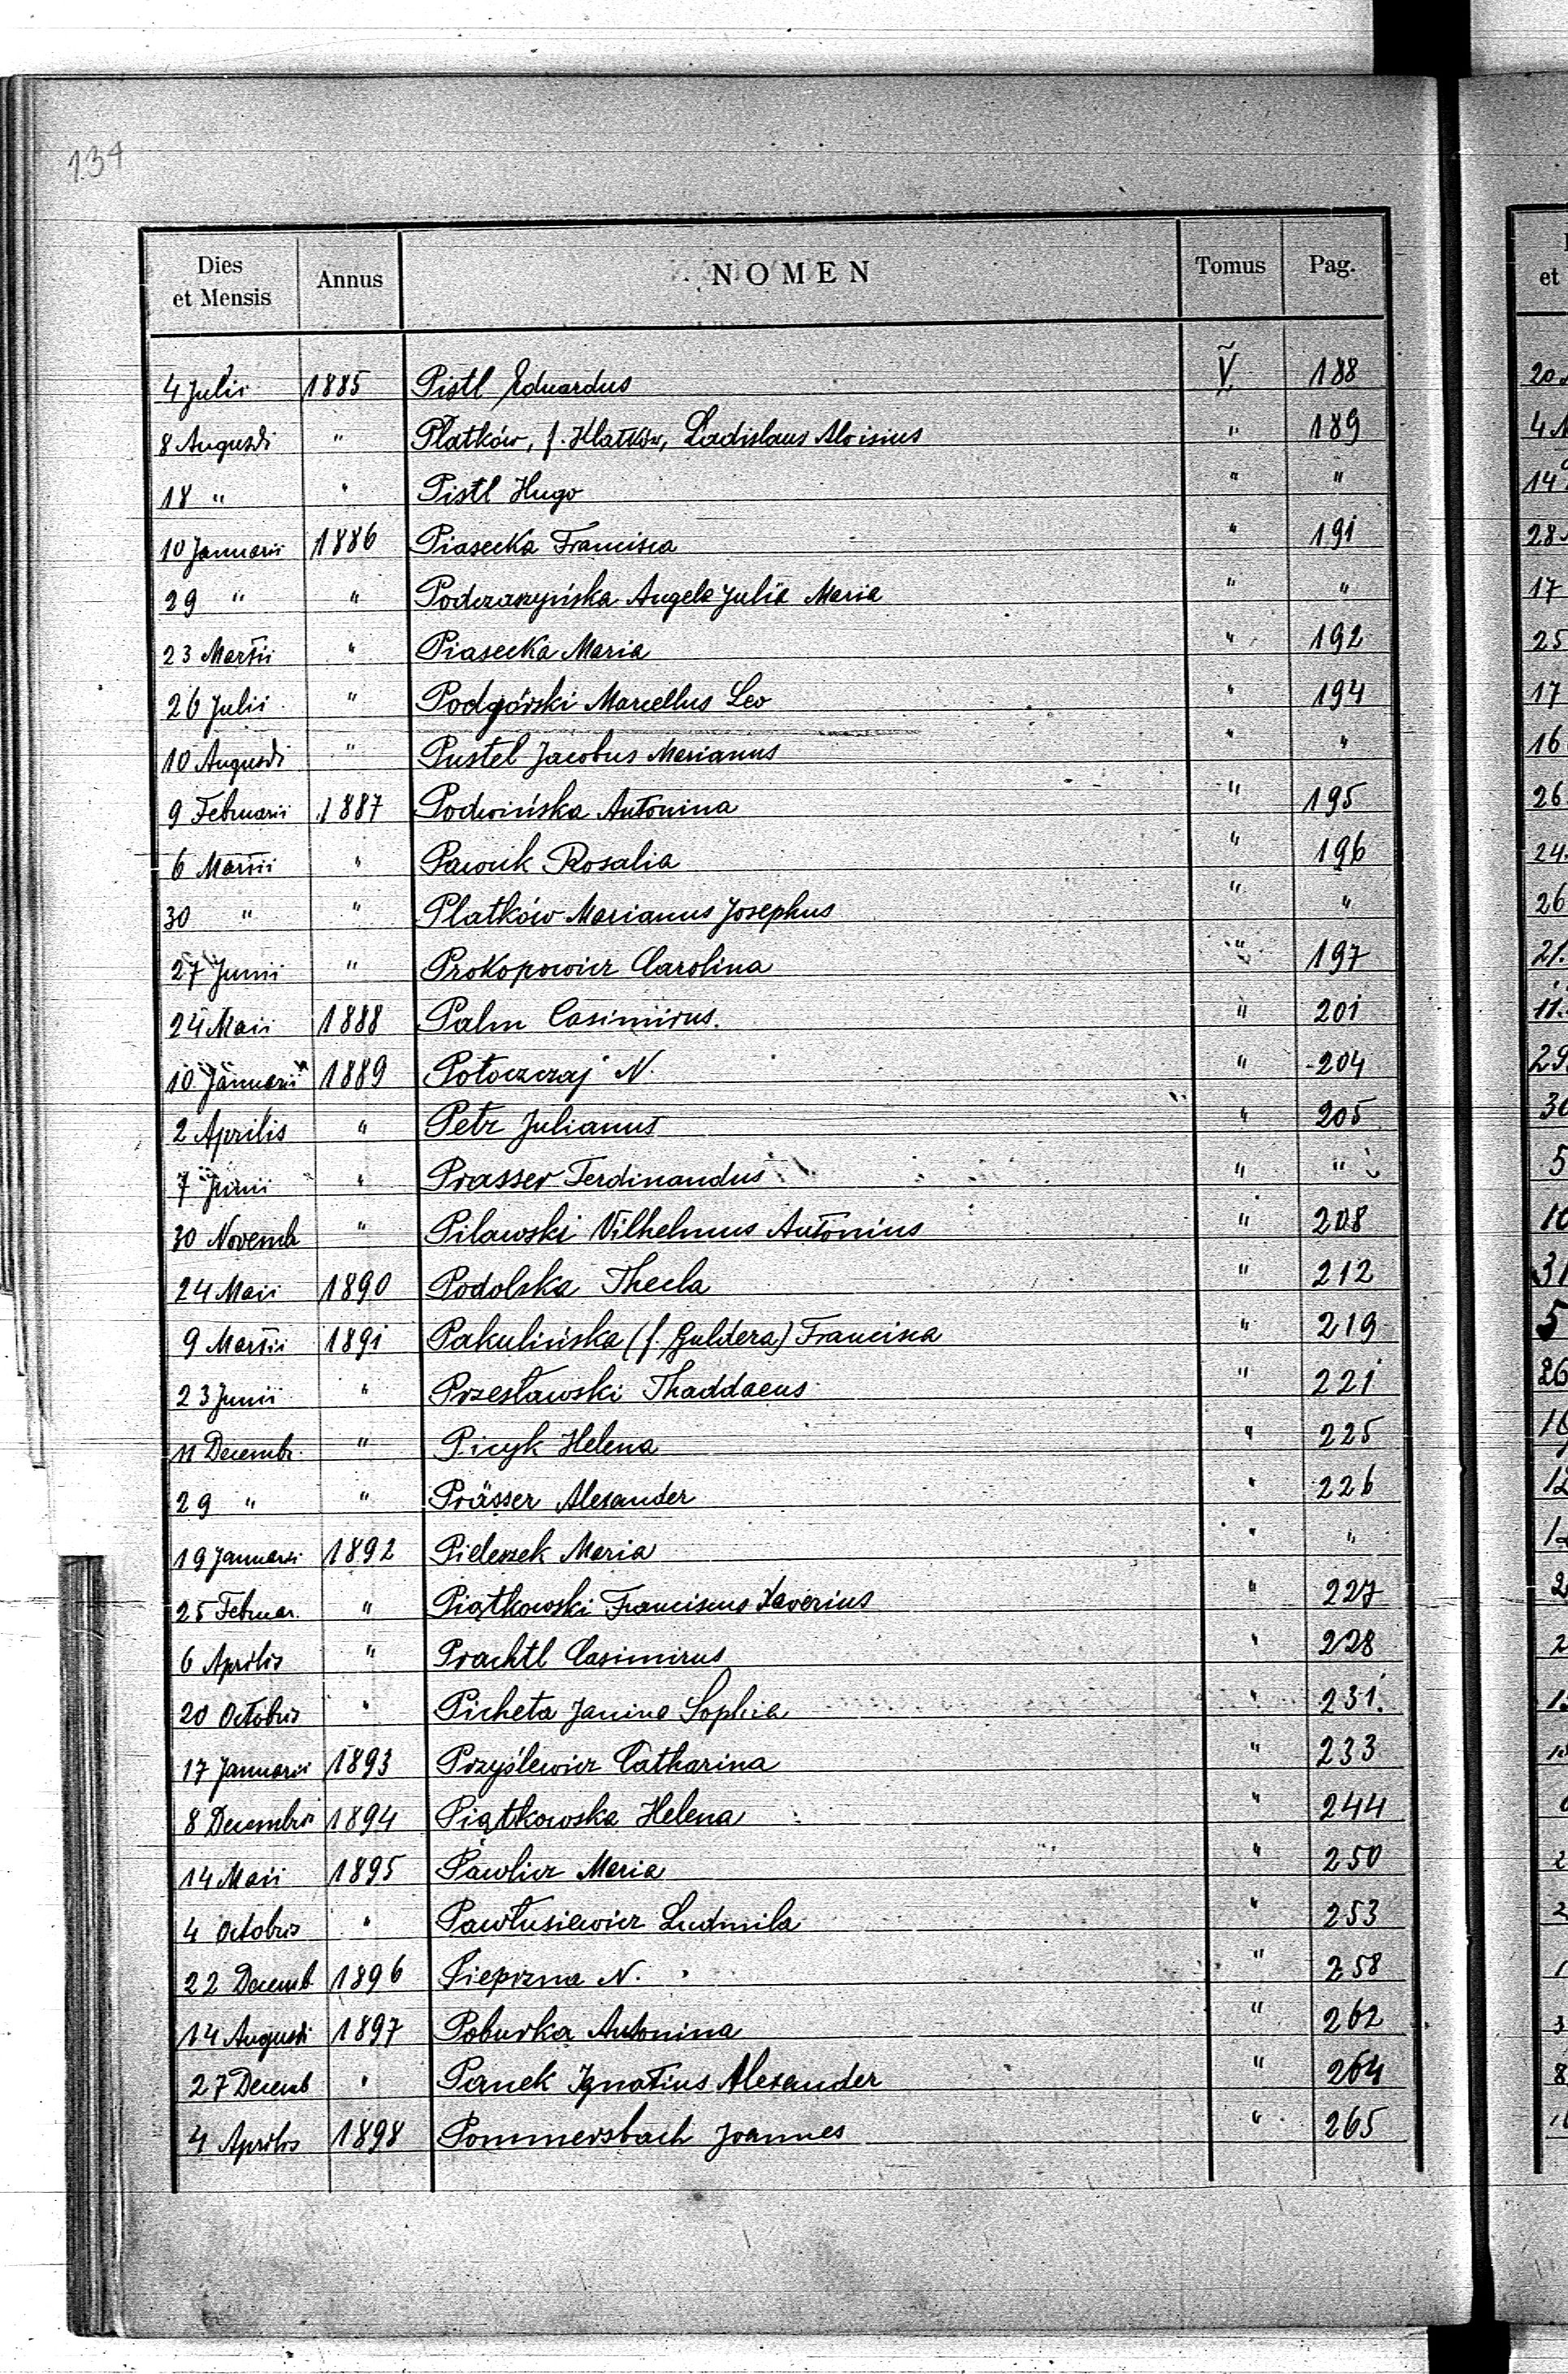 134
Dies et Mensis Annus NOMEN Tomus Pag.
4 Julii 1885 Pistl Eduardus V 188
8 Augusti " Płatków, f. Kłatków, Ladislaus Aloisius " 189
18 " " Pistl Hugo " "
10 Januarii 1886 Piasecka Francisca " 191
29 " " Podczaszyńska Angela Julia Maria " "
23 Martii " Piasecka Maria " 192
26 Julii " Podgórski Marcellus Leo " 194
10 Augusti " Pustel Jacobus Marianus " "
9 Februarii 1887 Podwińska Antonina " 195
6 Martii " Rosalia " 196
30 " " Platków Marianus Josephus " "
27 Junii " Prokopowicz Carolina " 197
24 Maii 1888 Palm Casimirus. " 201
10 Januarii 1889 Potoczaj N. " 204
2 Aprilis " Petr Julianus " 205
7 Junii " Prasser Ferdinandus " "
30 Novemb " Pilawski Vilhelmus Antonius " 208
24 Maii 1890 Podolska Thecla " 212
9 Martii 1891 Pakulińska (f. Guldera) Francisca " 219
23 Junii " Przesławski Thaddaeus " 221
11 Decembr. " Picyk Helena " 225
29 " " Prässer Alexander " 226
19 Januarii 1892 Maria " "
25 Februar. " Piątkowski Franciscus Xaverius " 227
6 Aprilis " Prachtl Casimirus " 228
20 Octobris " Picheta Janina Sophia " 231.
17 Januarii 1893 Przyślewicz Catharina " 233
8 Decembris 1894 Piątkowska Helena " 244
14 Maii 1895 Pawlicz Maria " 250
4 Octobris " Pawłusiewicz Ludmila " 253
22 Decemb 1896 Pieprzna N. " 258
14 Augusti 1897 Poburka Antonina " 262
27 Decemb " Panek Ignatius Alexander " 264
4 Aprilis 1898 Pommersbach Joannes " 265